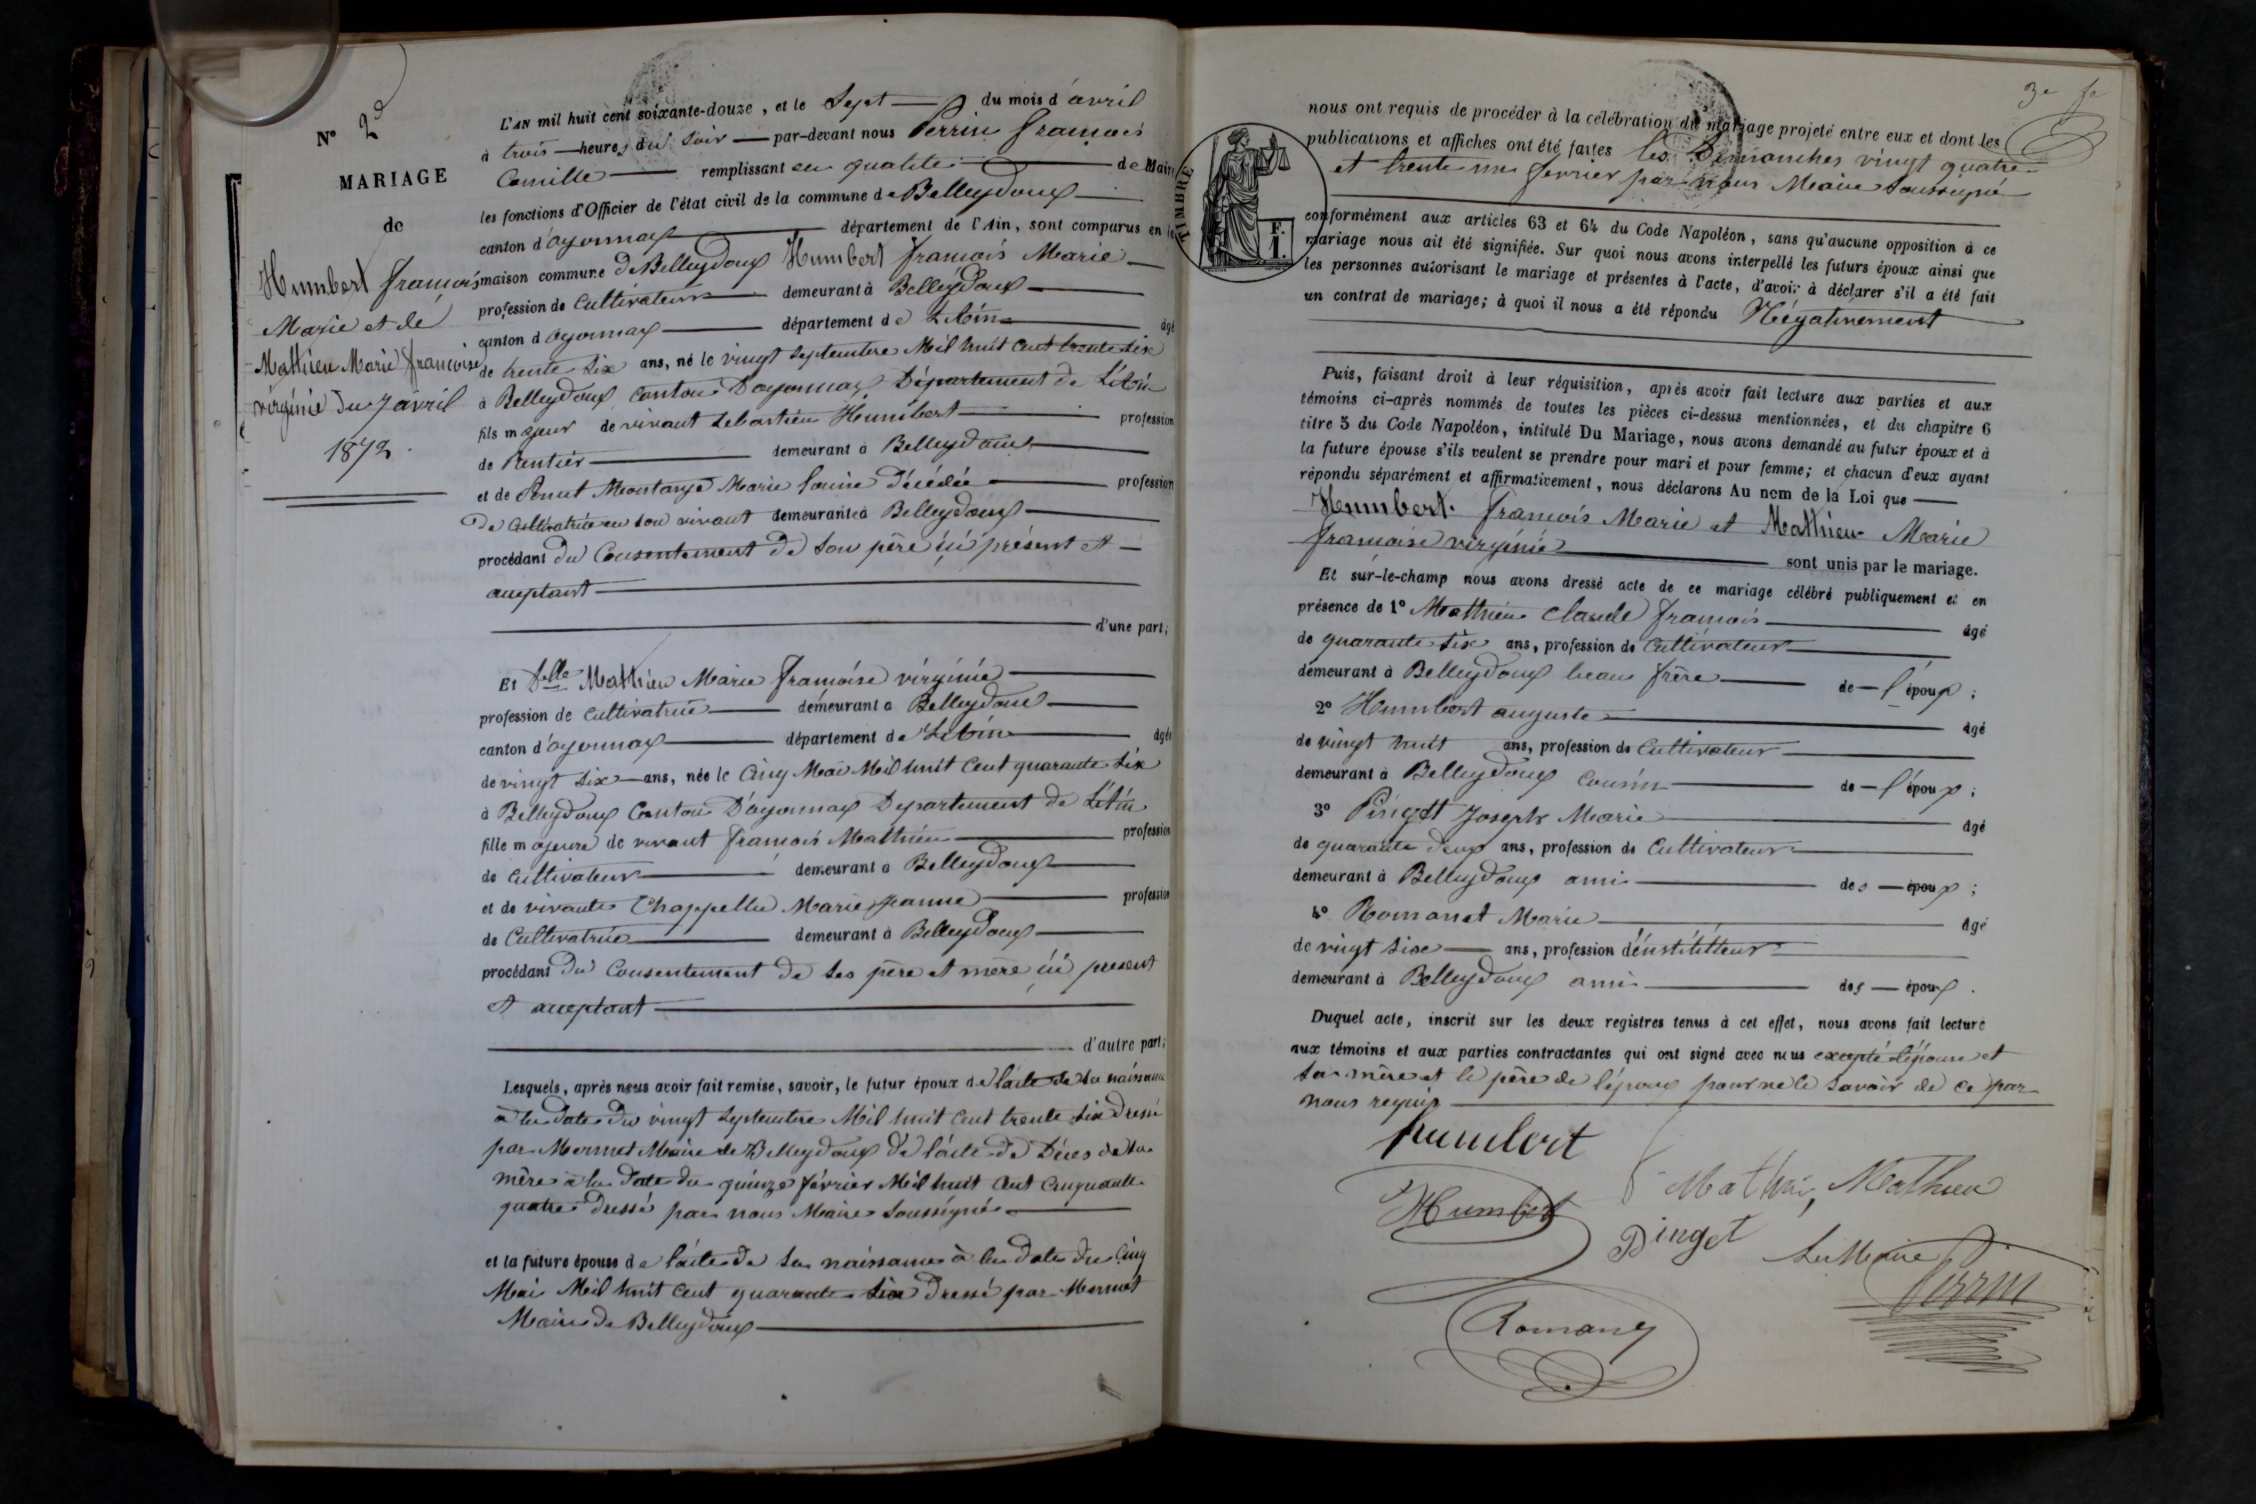 N° 2
MARIAGE
de
Humbert françois
Marie et de
Mathieu Marie françoise
virginie du 7 avril
1872.
L'AN mil huit cent soixante-douze, et le Sept du mois d'avril
à trois heures du Soir par-devant nous Perrin françois
Camille remplissant en qualité de Maire
les fonctions d'Officier de l'état civil de la commune de Belleydoux
canton d'oyonnax département de l'Ain, sont comparus en la
maison commune de Belleydoux Humbert françois Marie
profession de Cultivateur demeurant à Belleydoux
canton d'oyonnax département de L'Ain âgé
de trente six ans, né le vingt Septembre Mil huit cent trente six
à Belleydoux Canton D'oyonnax Département de L'Ain
fils majeur de vivant Sebastien Humbert profession
de Rentier demeurant à Belleydoux
et de Montange Marie Louise Décédée profession
de Cultivatrice en son vivant demeurante à Belleydoux
procédant du Consentement de son père ici présent et
acceptant
d'une part;
Et Delle Mathieu Marie françoise virginie
profession de Cultivatrice demeurant à Belleydoux
canton d'oyonnax département de L'Ain âgée
de vingt six ans, née le Cinq Mai Mil huit Cent quarante six
à Belleydoux Canton D'oyonnax Departement de L'Ain
fille majeure de vivant françois Mathieu profession
de Cultivateur demeurant à Belleydoux
et de vivante Chappellu Marie Jeanne profession
de Cultivatrice demeurant à Belleydoux
procédant du Consentement de ses père et mère ici present
et acceptant
d'autre part;
Lesquels, après nous avoir fait remise, savoir, le futur époux de l'acte de sa naissance
à la date du vingt Septembre Mil huit Cent trente six dressé
par Mermet Maire de Belleydoux de l'acte de Décès de sa
mère à la date du quinze février Mil huit Cent Cinquante
quatre dressé par nous Maire soussigné
et la future épouse de l'acte de sa naissance à la date du Cinq
Mai Mil huit Cent quarante six dressé par Mermet
Maire de Belleydoux
nous ont requis de procéder à la célébration du mariage projeté entre eux et dont les
publications et affiches ont été faites les Dimanches vingt quatre
et trente un février par nous Maire soussigné
TIMBRE
F.
1.
conformément aux articles 63 et 64 du Code Napoléon, sans qu'aucune opposition à ce
mariage nous ait été signifiée. Sur quoi nous avons interpellé les futurs époux ainsi que
les personnes autorisant le mariage et présentes à l'acte, d'avoir à déclarer s'il a été fait
un contrat de mariage; à quoi il nous a été répondu Négativement
Puis, faisant droit à leur réquisition, après avoir fait lecture aux parties et aux
témoins ci-après nommés de toutes les pièces ci-dessus mentionnées, et du chapitre 6
titre 5 du Code Napoléon, intitulé Du Mariage, nous avons demandé au futur époux et à
la future épouse s'ils veulent se prendre pour mari et pour femme; et chacun d'eux ayant
répondu séparément et affirmativement, nous déclarons Au nom de la Loi que
Humbert françois Marie et Mathieu Marie
françoise virginie sont unis par le mariage.
Et sur-le-champ nous avons dressé acte de ce mariage célébré publiquement et en
présence de 1° Mathieu Claude françois âgé
de quarante six ans, profession de Cultivateur
demeurant à Belleydoux beau frère de l'époux;
2° Humbert auguste âgé
de vingt huit ans, profession de Cultivateur
demeurant à Belleydoux Cousin de l'époux;
3° Pinget Joseph Marie âgé
de quarante deux ans, profession de Cultivateur
demeurant à Belleydoux ami des époux;
4° Romanet Marie âgé
de vingt sixe ans, profession d'instituteur
demeurant à Belleydoux ami des époux.
Duquel acte, inscrit sur les deux registres tenus à cet effet, nous avons fait lecture
aux témoins et aux parties contractantes qui ont signé avec nous excepté l'épouse et
sa mère et le père de l'époux pour ne le savoir de ce par
nous requis
humbert
Mathieu Mathieu
Humbert
Pinget Le Maire
Perrin
Romanet